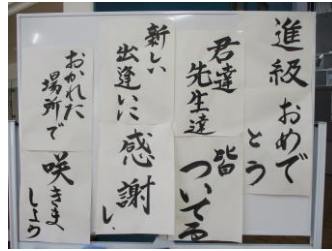 進級 おめで
とう
君達
先生達
皆
ついてる
新しい
出逢いに
感謝し、
おかれた
場所で
咲きま
しょう